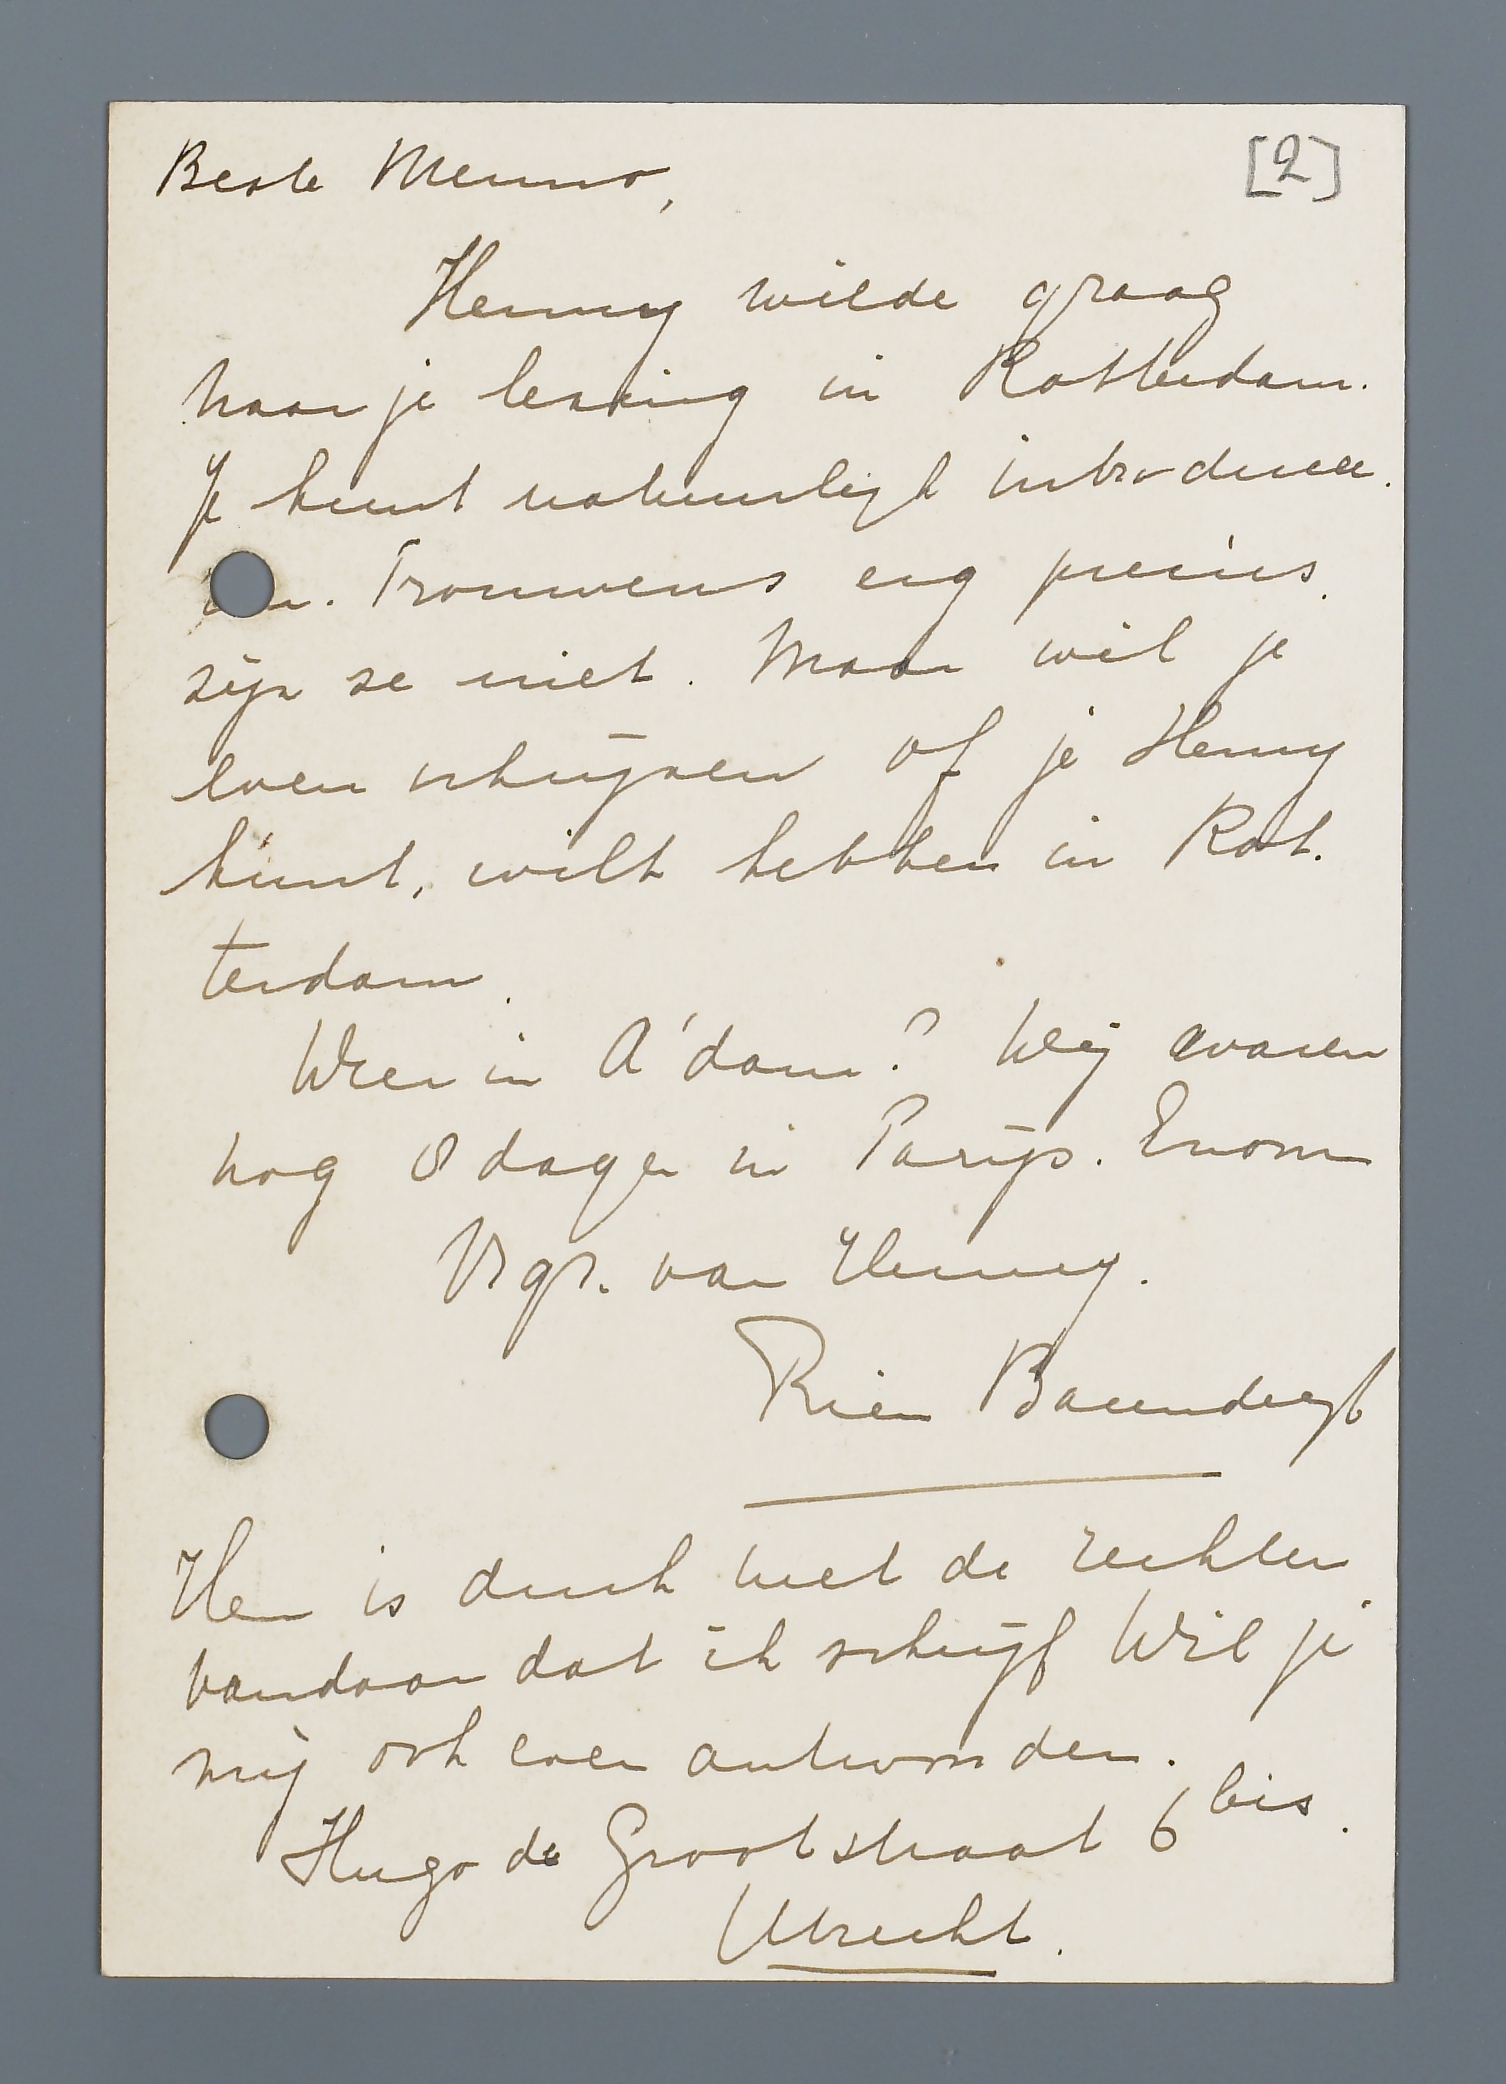 Beste Menno,
[2]
Henny wilde graag
naar je lezing in Rotterdam.
Je kunt natuurlijk introducee.
Trouwens erg precies
zijn ze niet. Maar wil je
even schrijven of je Henny
kunt, wilt hebben in Rot.
terdam.
Weer in A'dam? Wij waren
nog 8 dagen in Parijs. Enorm
Vrgr. van Henny.
Rien Barendregt
Hen is druk met de
vandaar dat ik schrijf Wil je
mij ook even antwoorden.
Hugo de Grootstraat 6 bis.
Utrecht.